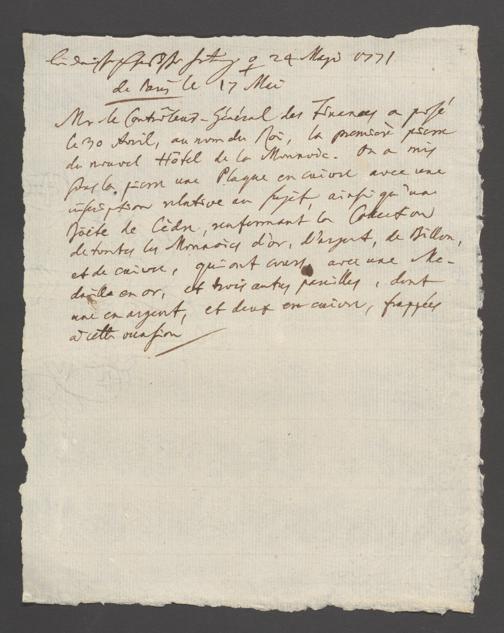 24 May 1771
de Paris le 17 Mei
Mr. le Contrôleur-Général des Finances a posé
le 30 Avril, au nom du Roi, la première pierre
du nouvel Hôtel de la Monnoie. On a mis
sous la pierre une Plaque en cuivre avec une
inscription relative au sujet ainsi qu'une
Boëte de Cèdre, renfermant la Collection
de toutes les Monnoies d'or, d'argent, de Billon,
et de cuivre, qui ont cours avec une Mé-
daille en or, et trois autres pareilles, dont
une en argent, et deux en cuivre, frappées
à cette occasion